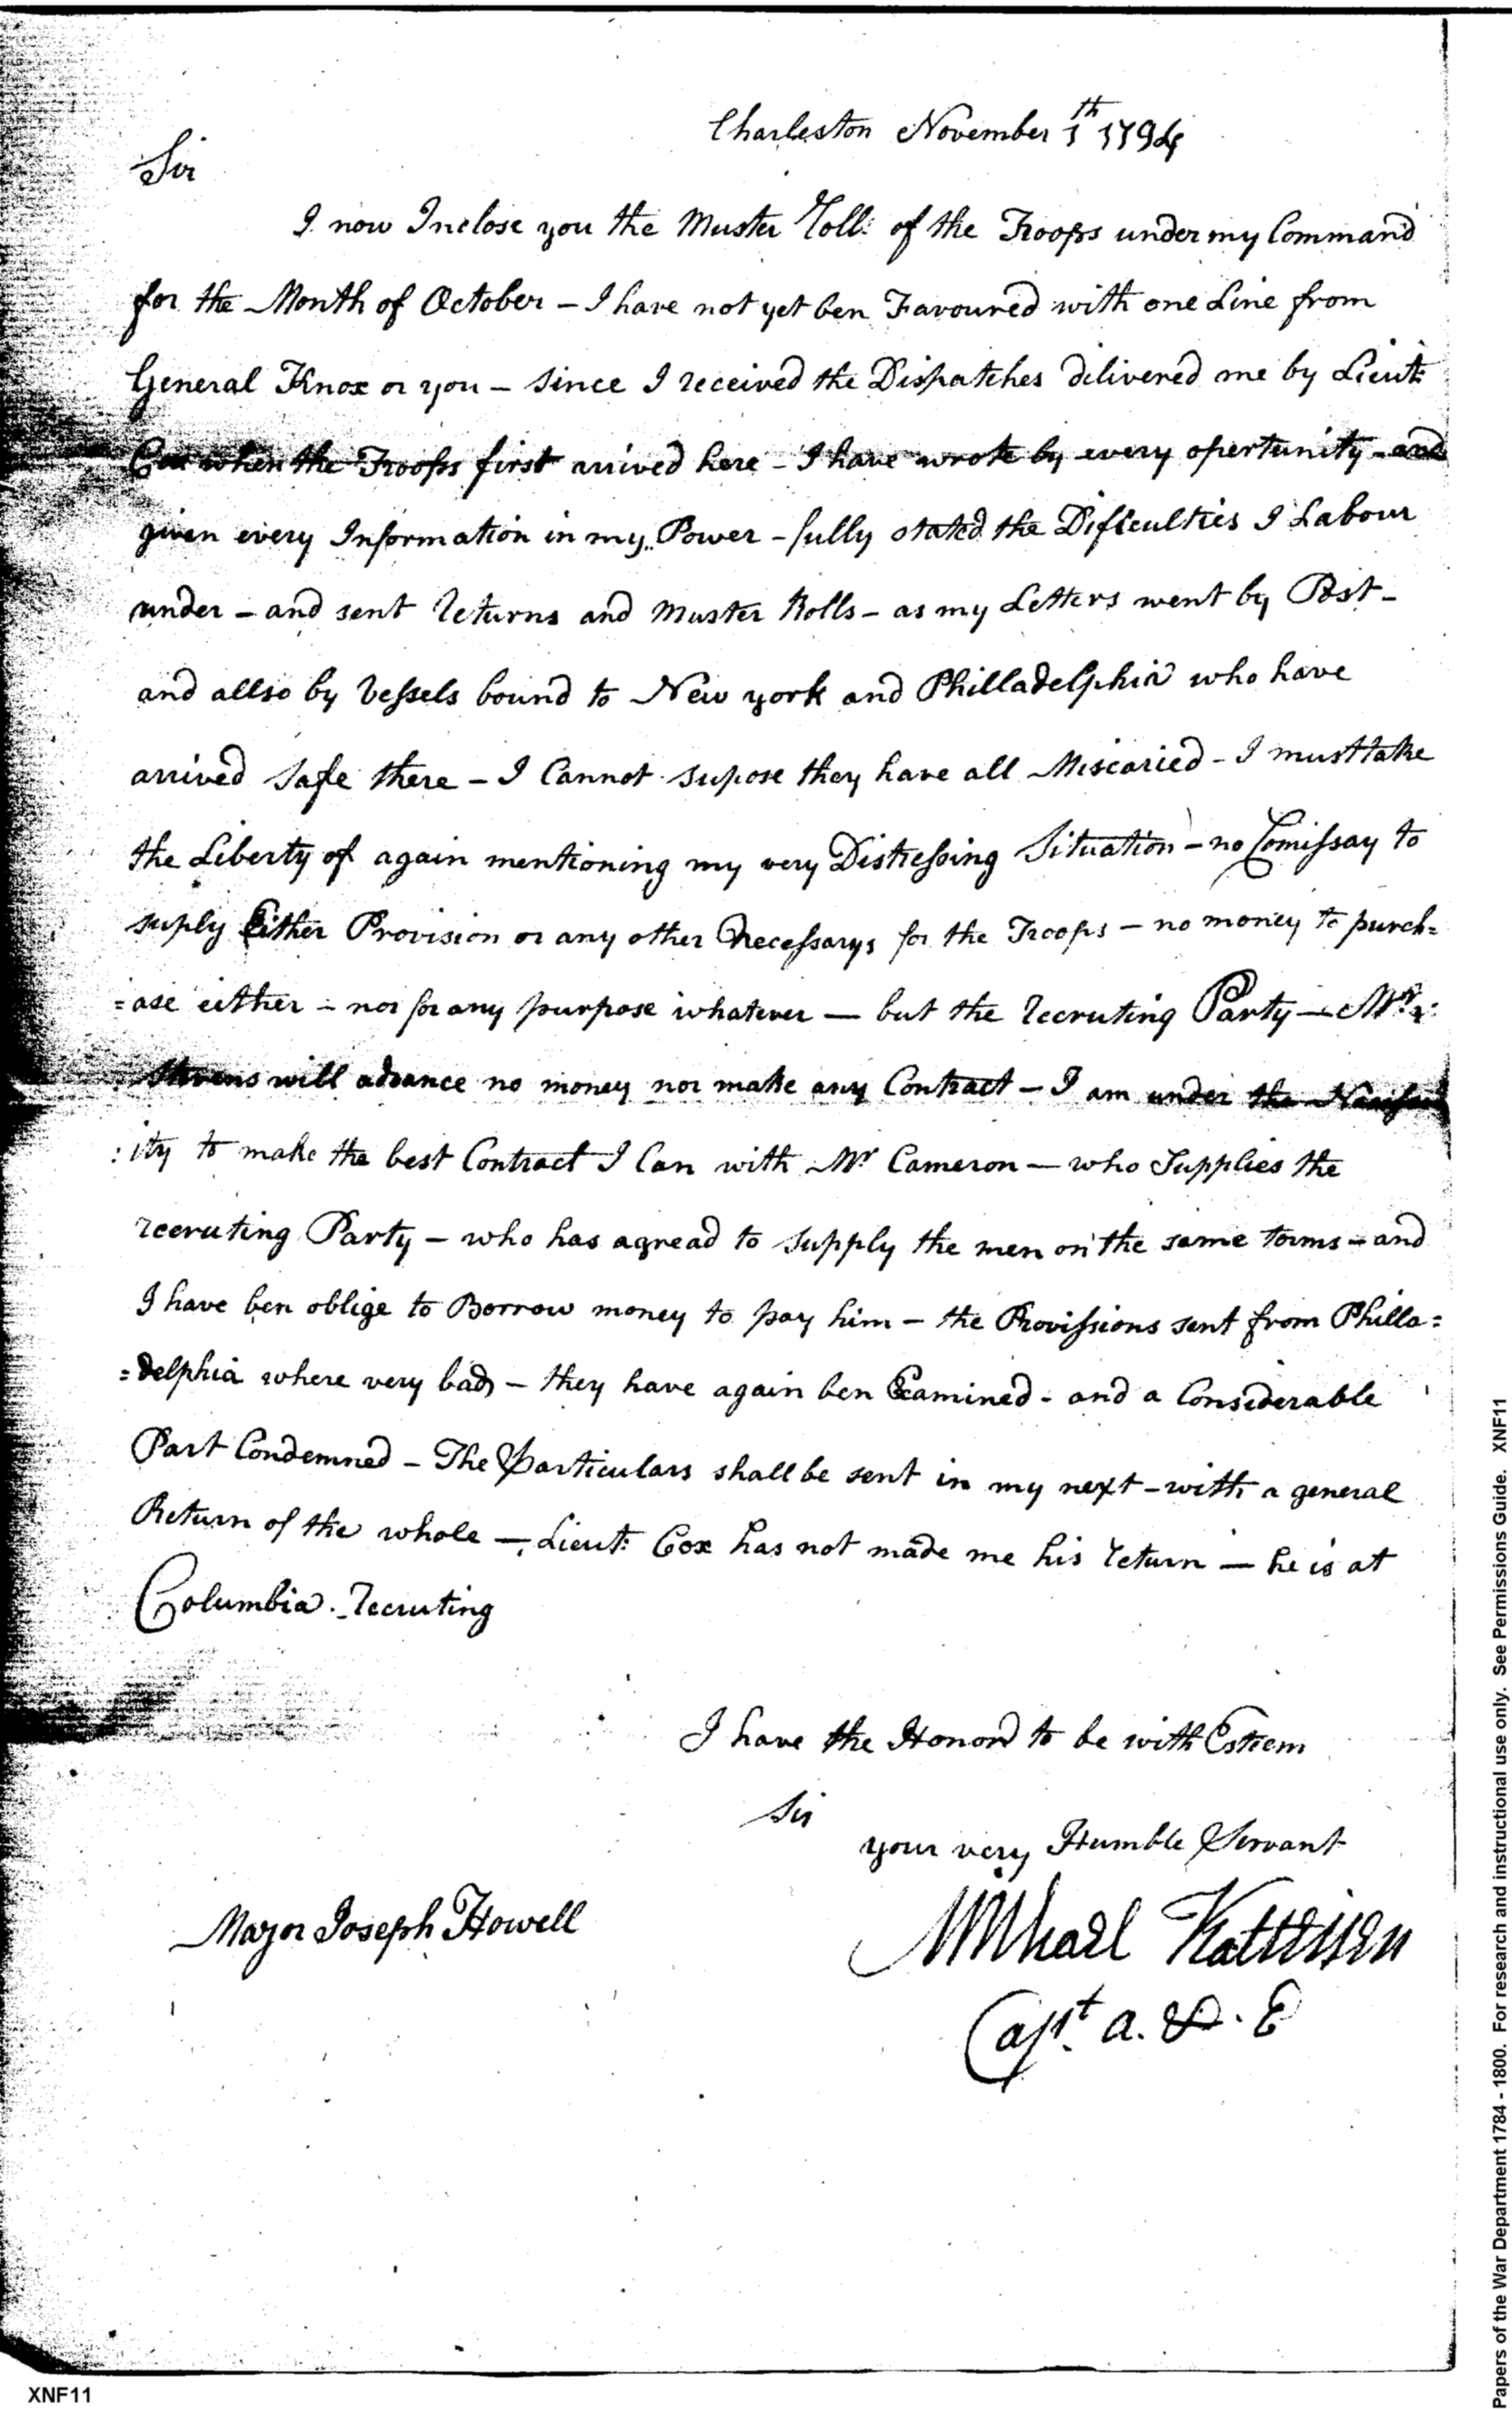 Charleston November 1th 1794
Sir
I now Inclose you the Muster Roll: of the Troops under my Command
for the Month of October – I have not yet ben Favoured with one Line from
General Knox or you – since I received the Dispatches delivered me by Lieut:
Cox when the Troops first arrived here – I have wrote by every opertunity – and
given every Information in my Power – fully stated the Difficulties I Labour
under – and sent returns and Muster Rolls – as my Letters went by Post –
and allso by Vessels bound to New york and Philladelphia who have
arrived safe there – I Cannot supose they have all Miscaried – I must take
the Liberty of again mentioning my very Distressing Situation – no Comissay to
suply Either Provision or any other Necessarys for the Troops – no money to purch=
=ase either – nor for any purpose whatever – but the recruting Party – Mr.
Stevens will advance no money nor make any Contract – I am under the Necess
:ity to make the best Contract I Can with Mr Cameron – who Supplies the
recruting Party – who has agread to supply the men on the same terms – and
I have ben oblige to Borrow money to pay him – the Provissions sent from Philla=
=delphia where very bad – they have again ben Examined – and a Considerable
Part Condemned – The Particulars shall be sent in my next – with a general
Return of the whole – Lieut: Cox has not made me his return – he is at
Columbia – recruting
I have the Honord to be with Esteem
Sir
your very Humble Servant
Major Joseph Howell
Mikhael Kalteisen
Capt. A. & E
XNF11
Papers of the War Department 1784 - 1800. For research and instructional use only. See Permissions Guide. XNF11